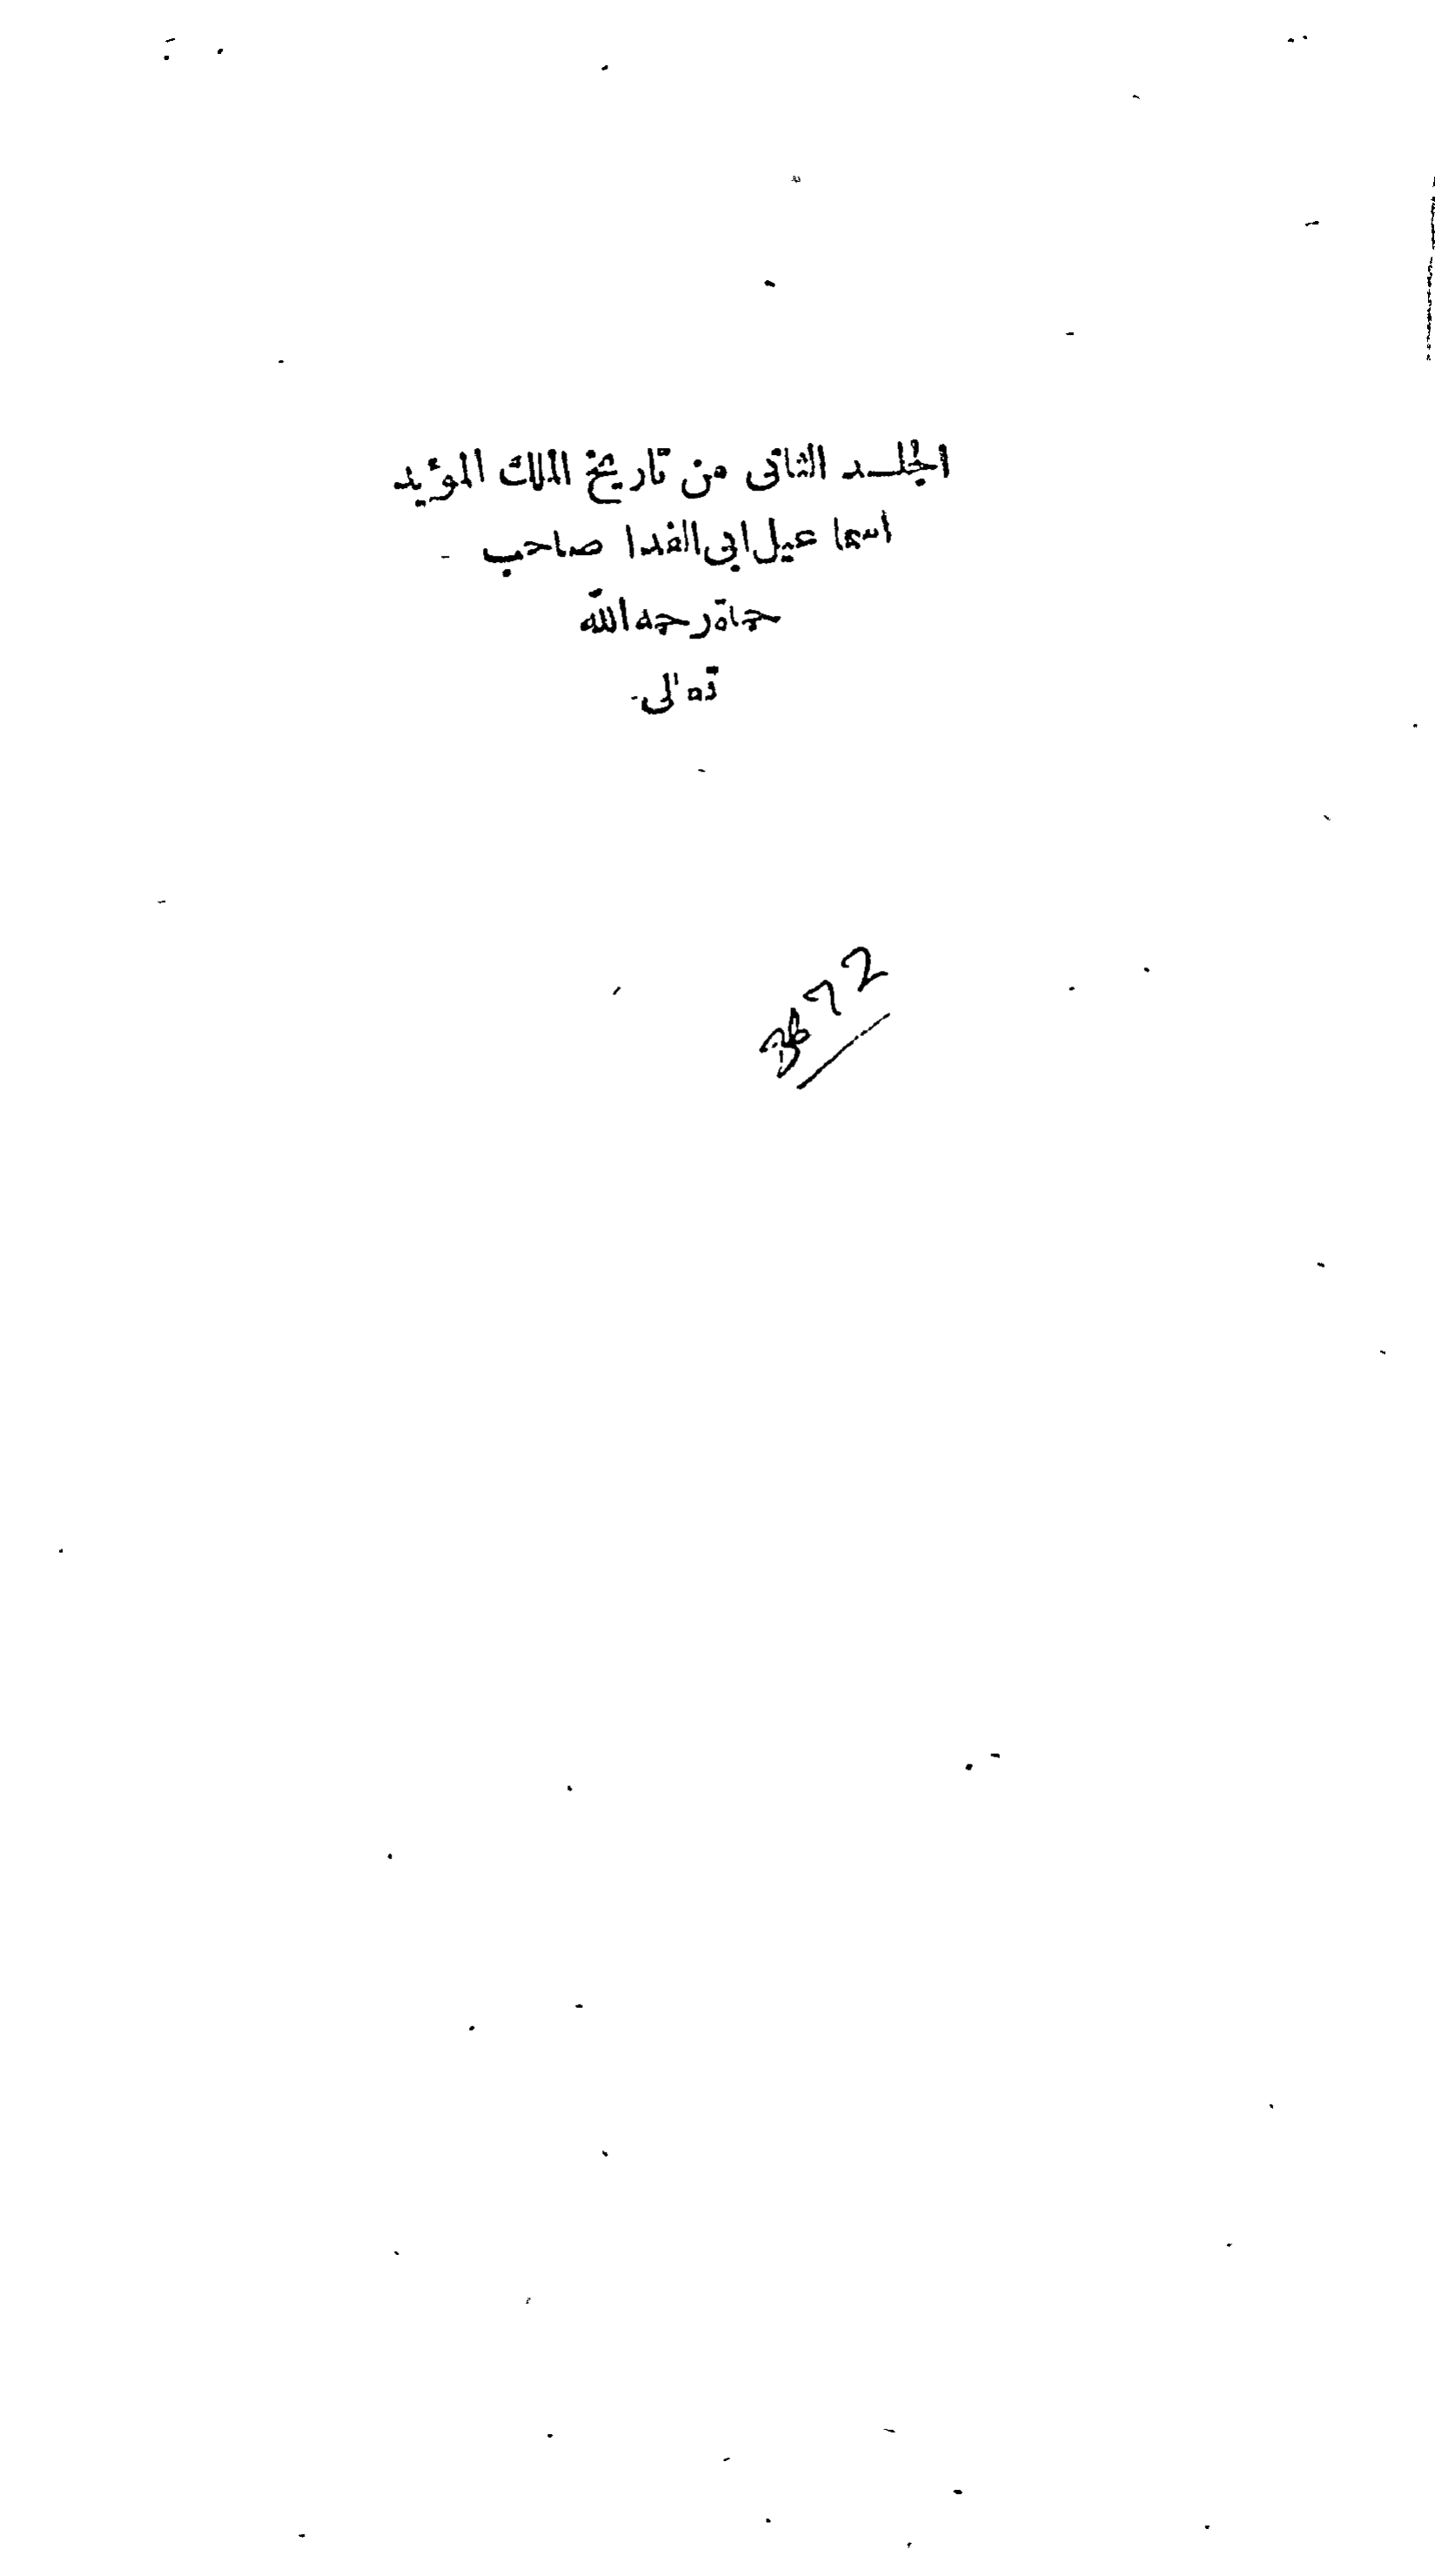 المجلد الثانى من تاريخ الملك المؤيد
اسماعيل ابى الفدا صاحب
حماة رحمه الله
تعالى
3672